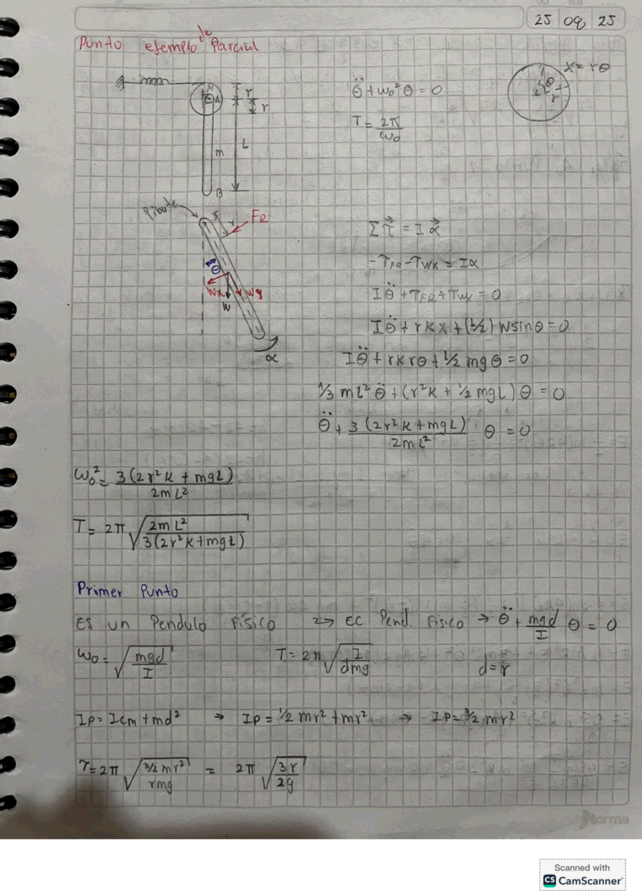 25 09 25
Punto ejemplo de Parcial
x = rθ
θ
r
θ̈ + ω₀² θ = 0
T = 2π/ω₀
A
r
r
L
m
B
Pibote
r
FR
θ
Wx
W
Wy
α
Στ⃗ = I α⃗
-τFR - τWx = Iα
Iθ̈ + τFR + τWx = 0
Iθ̈ + rkx + (L/2) W sinθ = 0
Iθ̈ + rkrθ + L/2 mg θ = 0
1/3 mL² θ̈ + (r²k + 1/2 mgL) θ = 0
θ̈ + 3(2r²k + mgL)/2mL² θ = 0
ω₀² = 3(2r²k + mgL)/2mL²
T = 2π √(2mL²/3(2r²k + mgL))
Primer Punto
Es un Pendulo Fisico => ec Pend. Fisico → θ̈ + mgd/I θ = 0
ω₀ = √(mgd/I) T = 2π √(I/dmg) d = r
Ip = Icm + md² → Ip = 1/2 mr² + mr² → Ip = 3/2 mr²
T = 2π √(3/2 mr²/rmg) = 2π √(3r/2g)
Norma
Scanned with
CS CamScanner